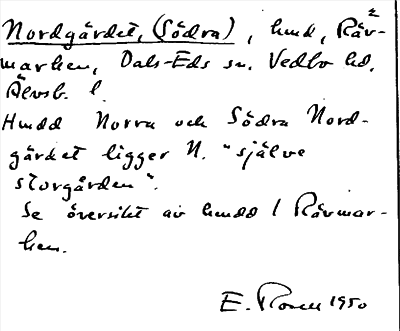 Nordgärdet, (Södra), hmd, Räv-
marken, Dals-Eds sn. Vedbo hd,
Älvsb. l.
Hmdd Norra och Södra Nord-
gärdet ligger N. "själve
storgården".
Se översikt av hmdd / Rävmar-
ken.
E. Rosell 1950